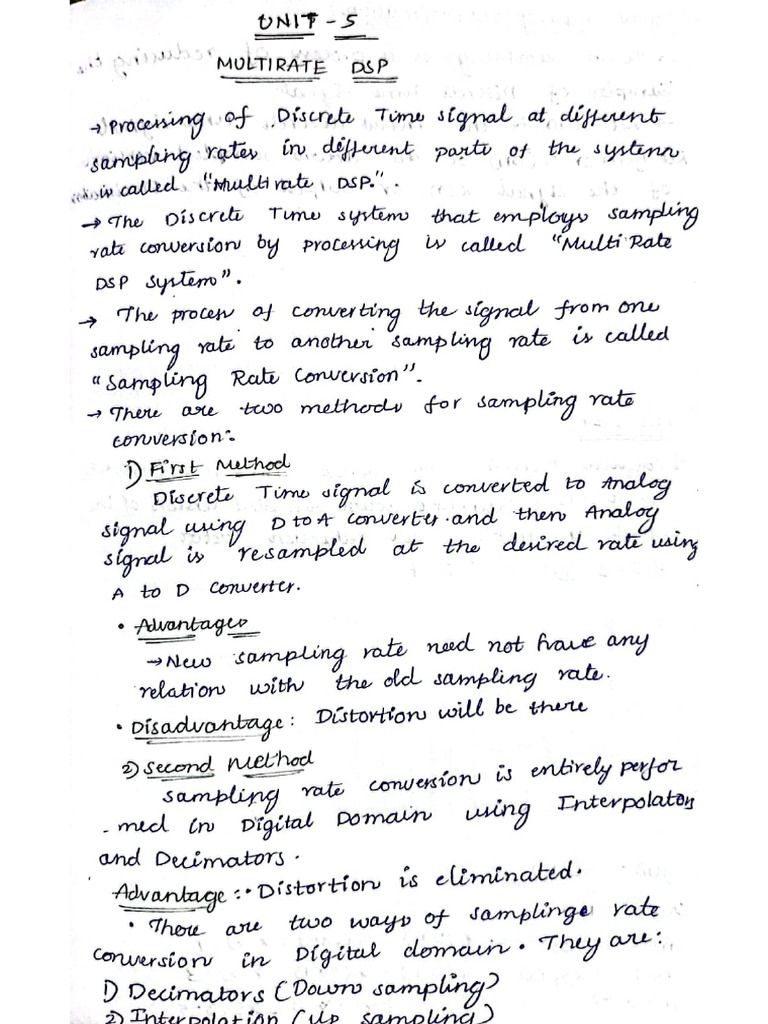 UNIT - 5
MULTIRATE DSP
→ Processing of Discrete Time signal at different
sampling rates in different parts of the system
is called "Multirate DSP.".
→ The Discrete Time system that employs sampling
rate conversion by processing is called "Multi Rate
DSP System".
→ The process of converting the signal from one
sampling rate to another sampling rate is called
"Sampling Rate Conversion".
→ There are two methods for sampling rate
conversion:-
1) First Method
Discrete Time signal is converted to Analog
signal using D to A converter and then Analog
signal is resampled at the desired rate using
A to D converter.
• Advantages
→ New sampling rate need not have any
relation with the old sampling rate.
• Disadvantage: Distortion will be there
2) Second Method
sampling rate conversion is entirely perfor
-med in Digital Domain using Interpolators
and Decimators.
Advantage:- • Distortion is eliminated.
• There are two ways of samplinge rate
conversion in Digital domain. They are:
1) Decimators (Down sampling)
2) Interpolation (up sampling)